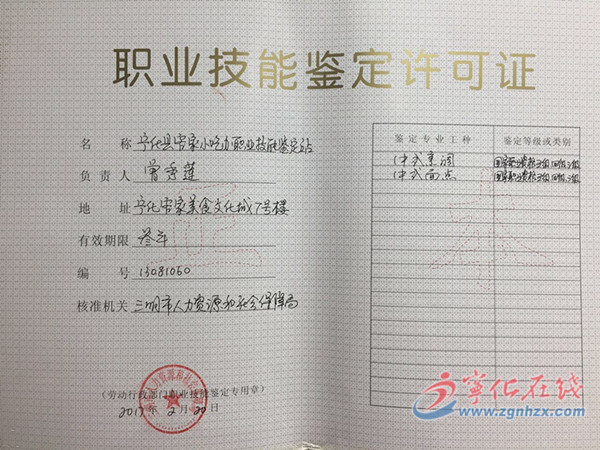 职业技能鉴定许可证
名 称 宁化县客家小吃办职业技能鉴定站
负责人 曾秀莲
地 址 宁化客家美食文化城7号楼
有效期限 叁年
编 号 13081060
核准机关 三明市人力资源和社会保障局
(劳动行政部门职业技能鉴定专用章)
2017年2月20日
鉴定专业工种 鉴定等级或类别
中式烹调 国家职业资格
中式面点 国家职业资格
宁化在线
www.zgnhzx.com